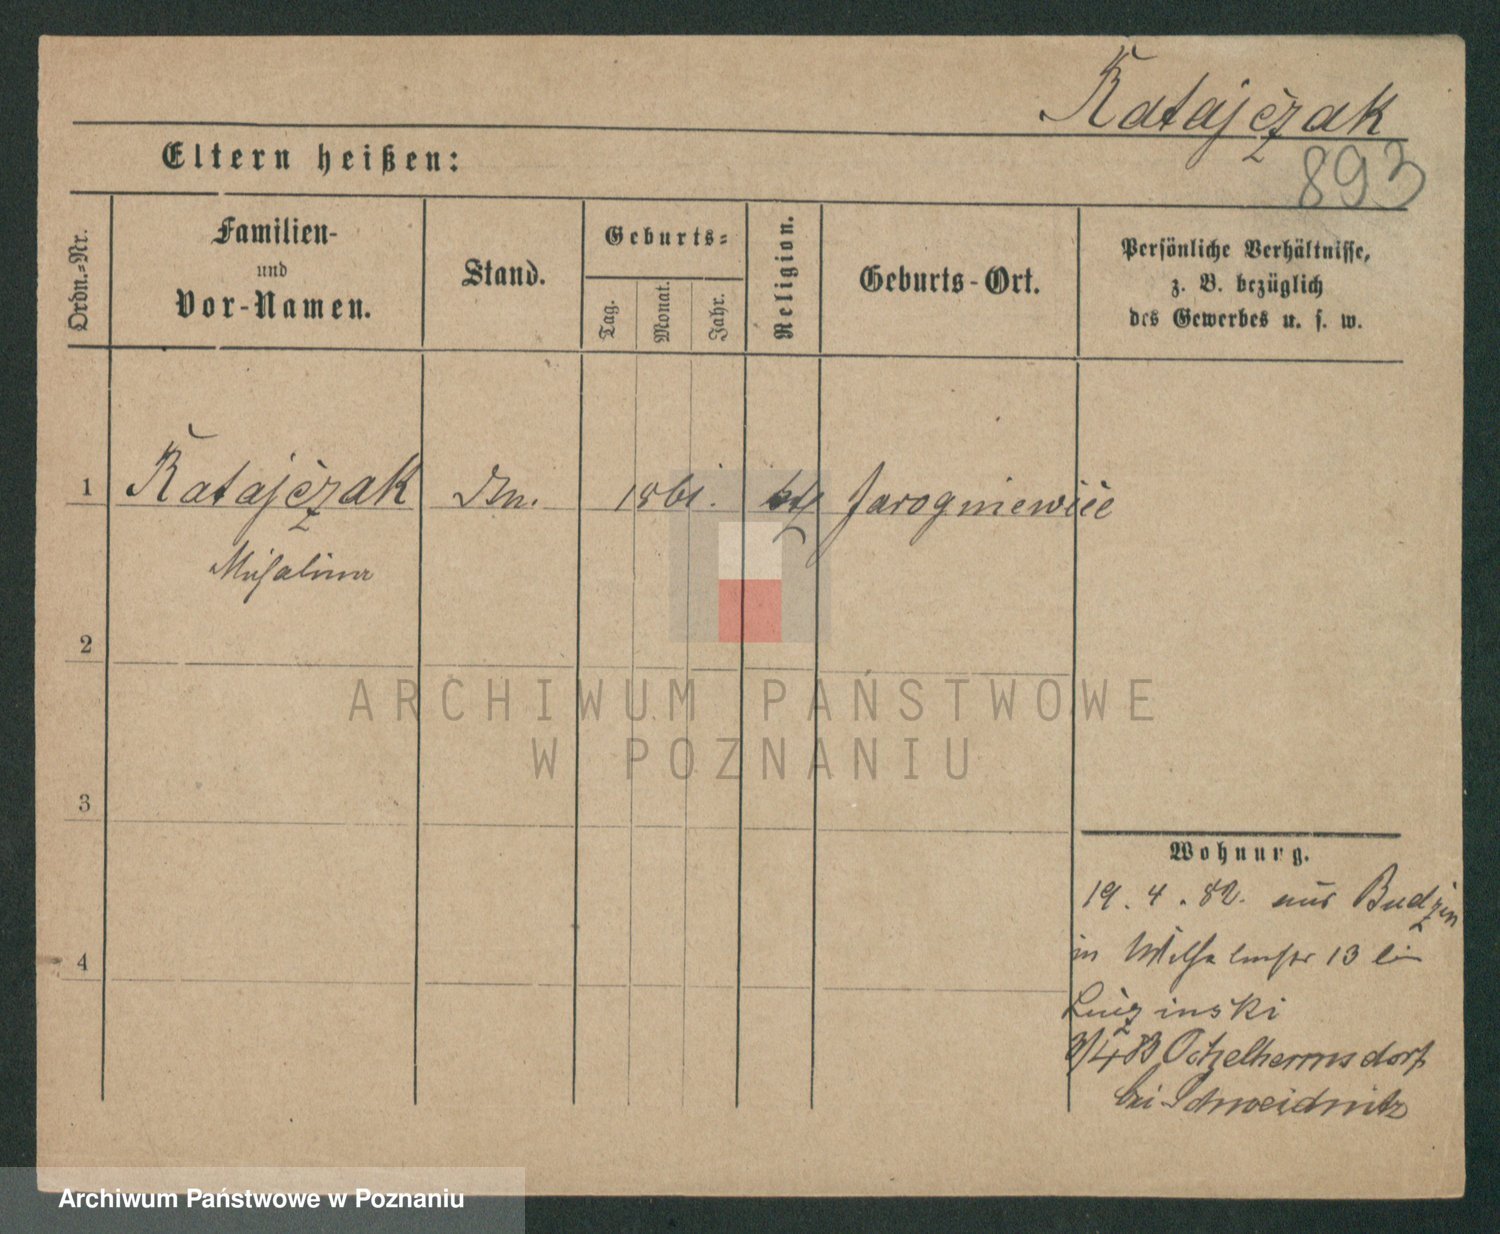 Ratajczak
893
Eltern heißen:
Ordn.-Nr.
Familien-
und
Vor-Namen.
Stand.
Geburts-
Tag.
Monat.
Jahr.
Religion.
Geburts-Ort.
Persönliche Verhältnisse,
z. B. bezüglich
des Gewerbes u. s. w.
1 Ratajczak 1861. kth Jarogniewice
Michalina
2
ARCHIWUM PAŃSTWOWE
W POZNANIU
3
4
Wohnung.
19. 4. 82. aus Budzin
in Wilhelmstr 13 bei
3/4 83 
bei Schweidnitz
Archiwum Państwowe w Poznaniu